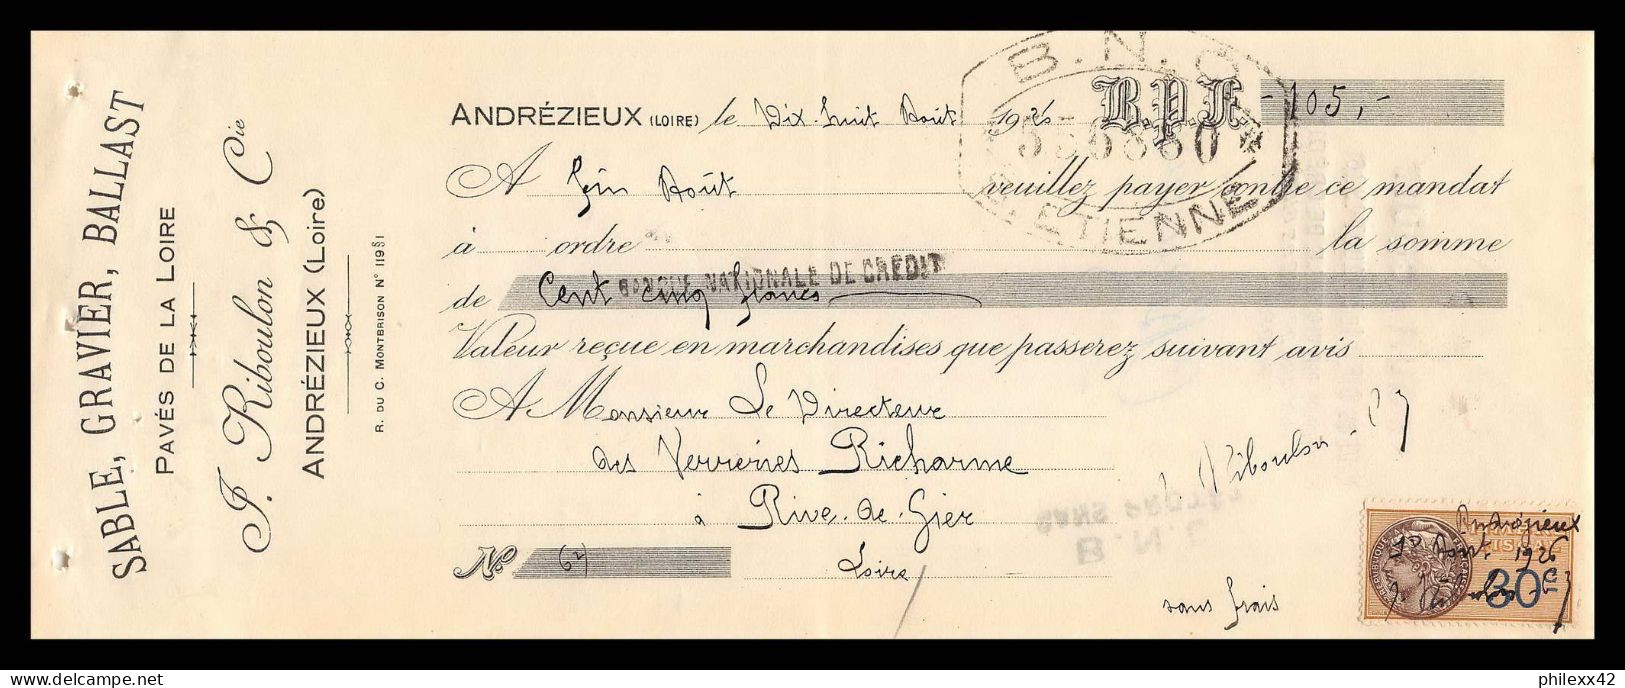 SABLE, GRAVIER, BALLAST
PAVÉS DE LA LOIRE
J. Riboulon & Cie
ANDRÉZIEUX (Loire)
R. DU C. MONTBRISON N° 11951
B.N.C
ST ETIENNE
ANDRÉZIEUX (LOIRE) le Dix-huit Août 1926 B.P.F. -105,-
A fin Août veuillez payer contre ce mandat
à ordre la somme
BANQUE NATIONALE DE CREDIT
de Cent cinq francs
Valeur reçue en marchandises que passerez suivant avis
A Monsieur Le Directeur
des Verreries Richarme
à Rive-de-Gier
Loire
J. Riboulon
No 67
B.N.C
SANS PROTET
sans frais
Andrézieux
Août 1926
30c
philexx42